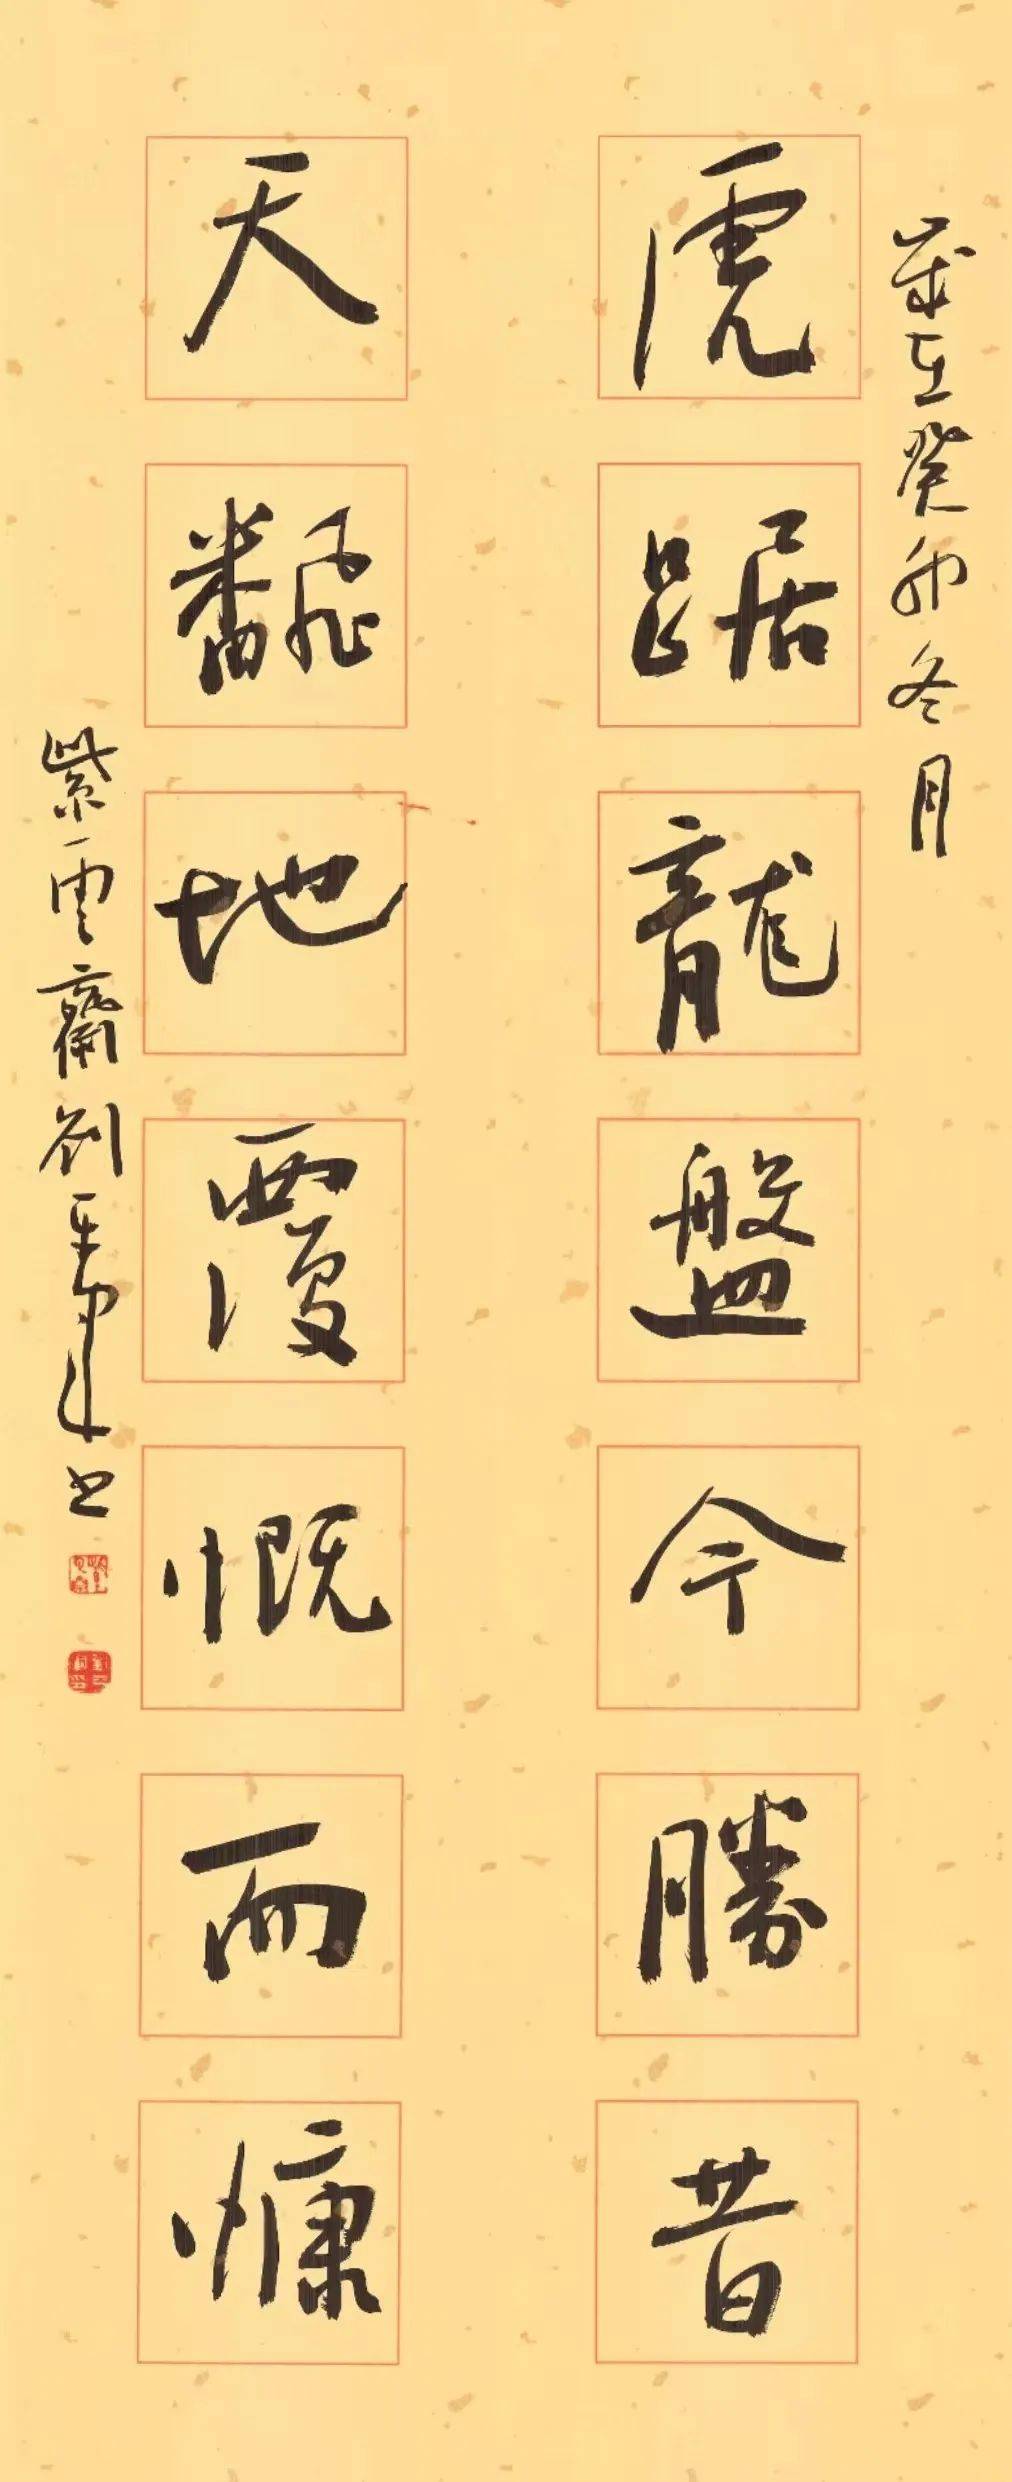 歲在癸卯冬月
虎踞龍盤今勝昔
天飜地覆慨而慷
紫雲齋劉書